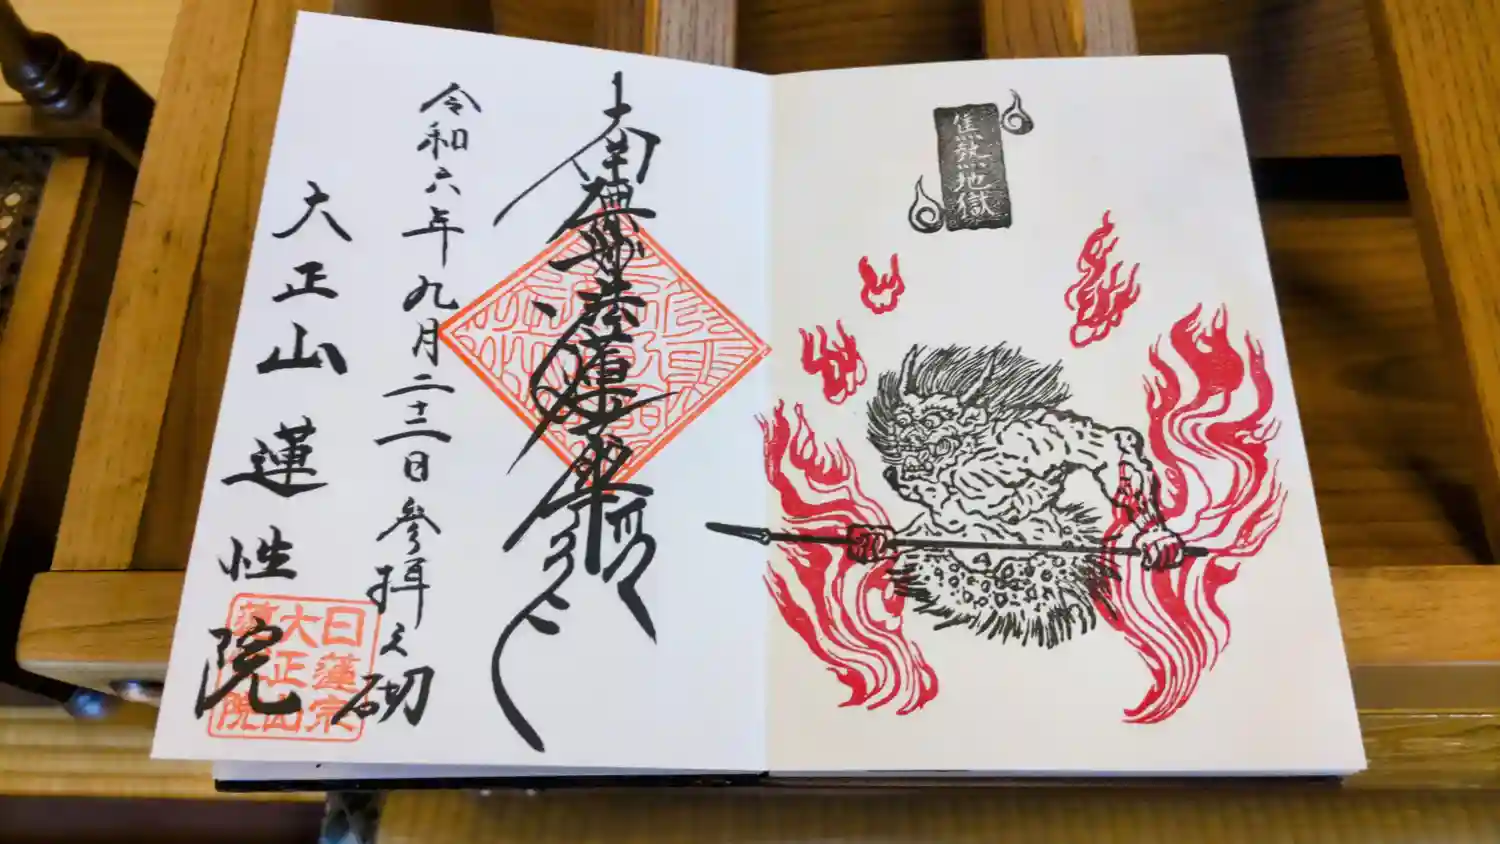 焦熱地獄
南無妙法蓮華経
令和六年九月二十二日参拝之砌
大正山蓮性院
日蓮宗
大正山
院